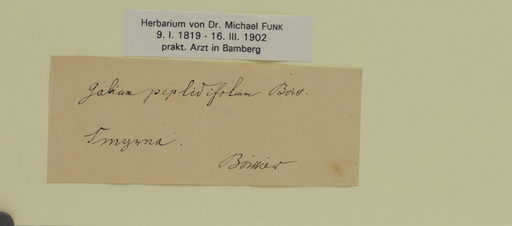 Herbarium von Dr. Michael FUNK
9. I. 1819 - 16. III. 1902
prakt. Arzt in Bamberg
Galium peplidifolium Boiss.
Smyrna.
Boissier